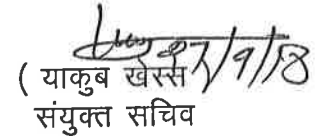 7/9/18
( याकुब खेस्स
संयुक्त सचिव